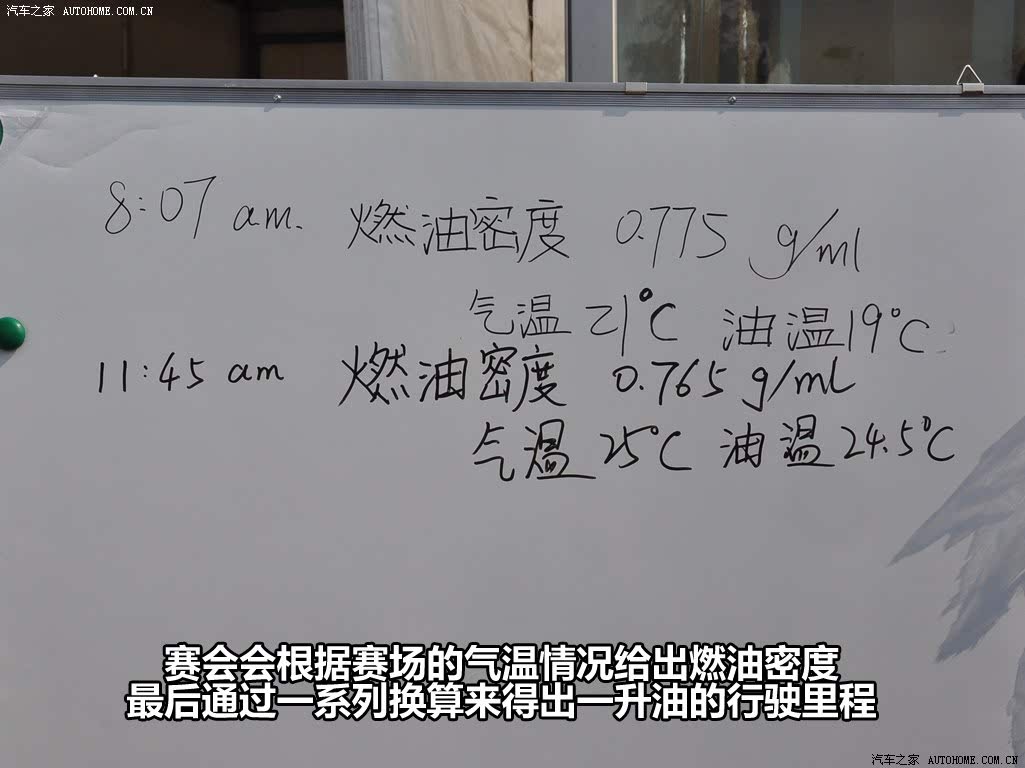 汽车之家 AUTOHOME.COM.CN
8:07 am. 燃油密度 0.775 g/ml
气温 21°C 油温 19°C
11:45 am 燃油密度 0.765 g/mL
气温 25°C 油温 24.5°C
赛会会根据赛场的气温情况给出燃油密度
最后通过一系列换算来得出一升油的行驶里程
汽车之家 AUTOHOME.COM.CN